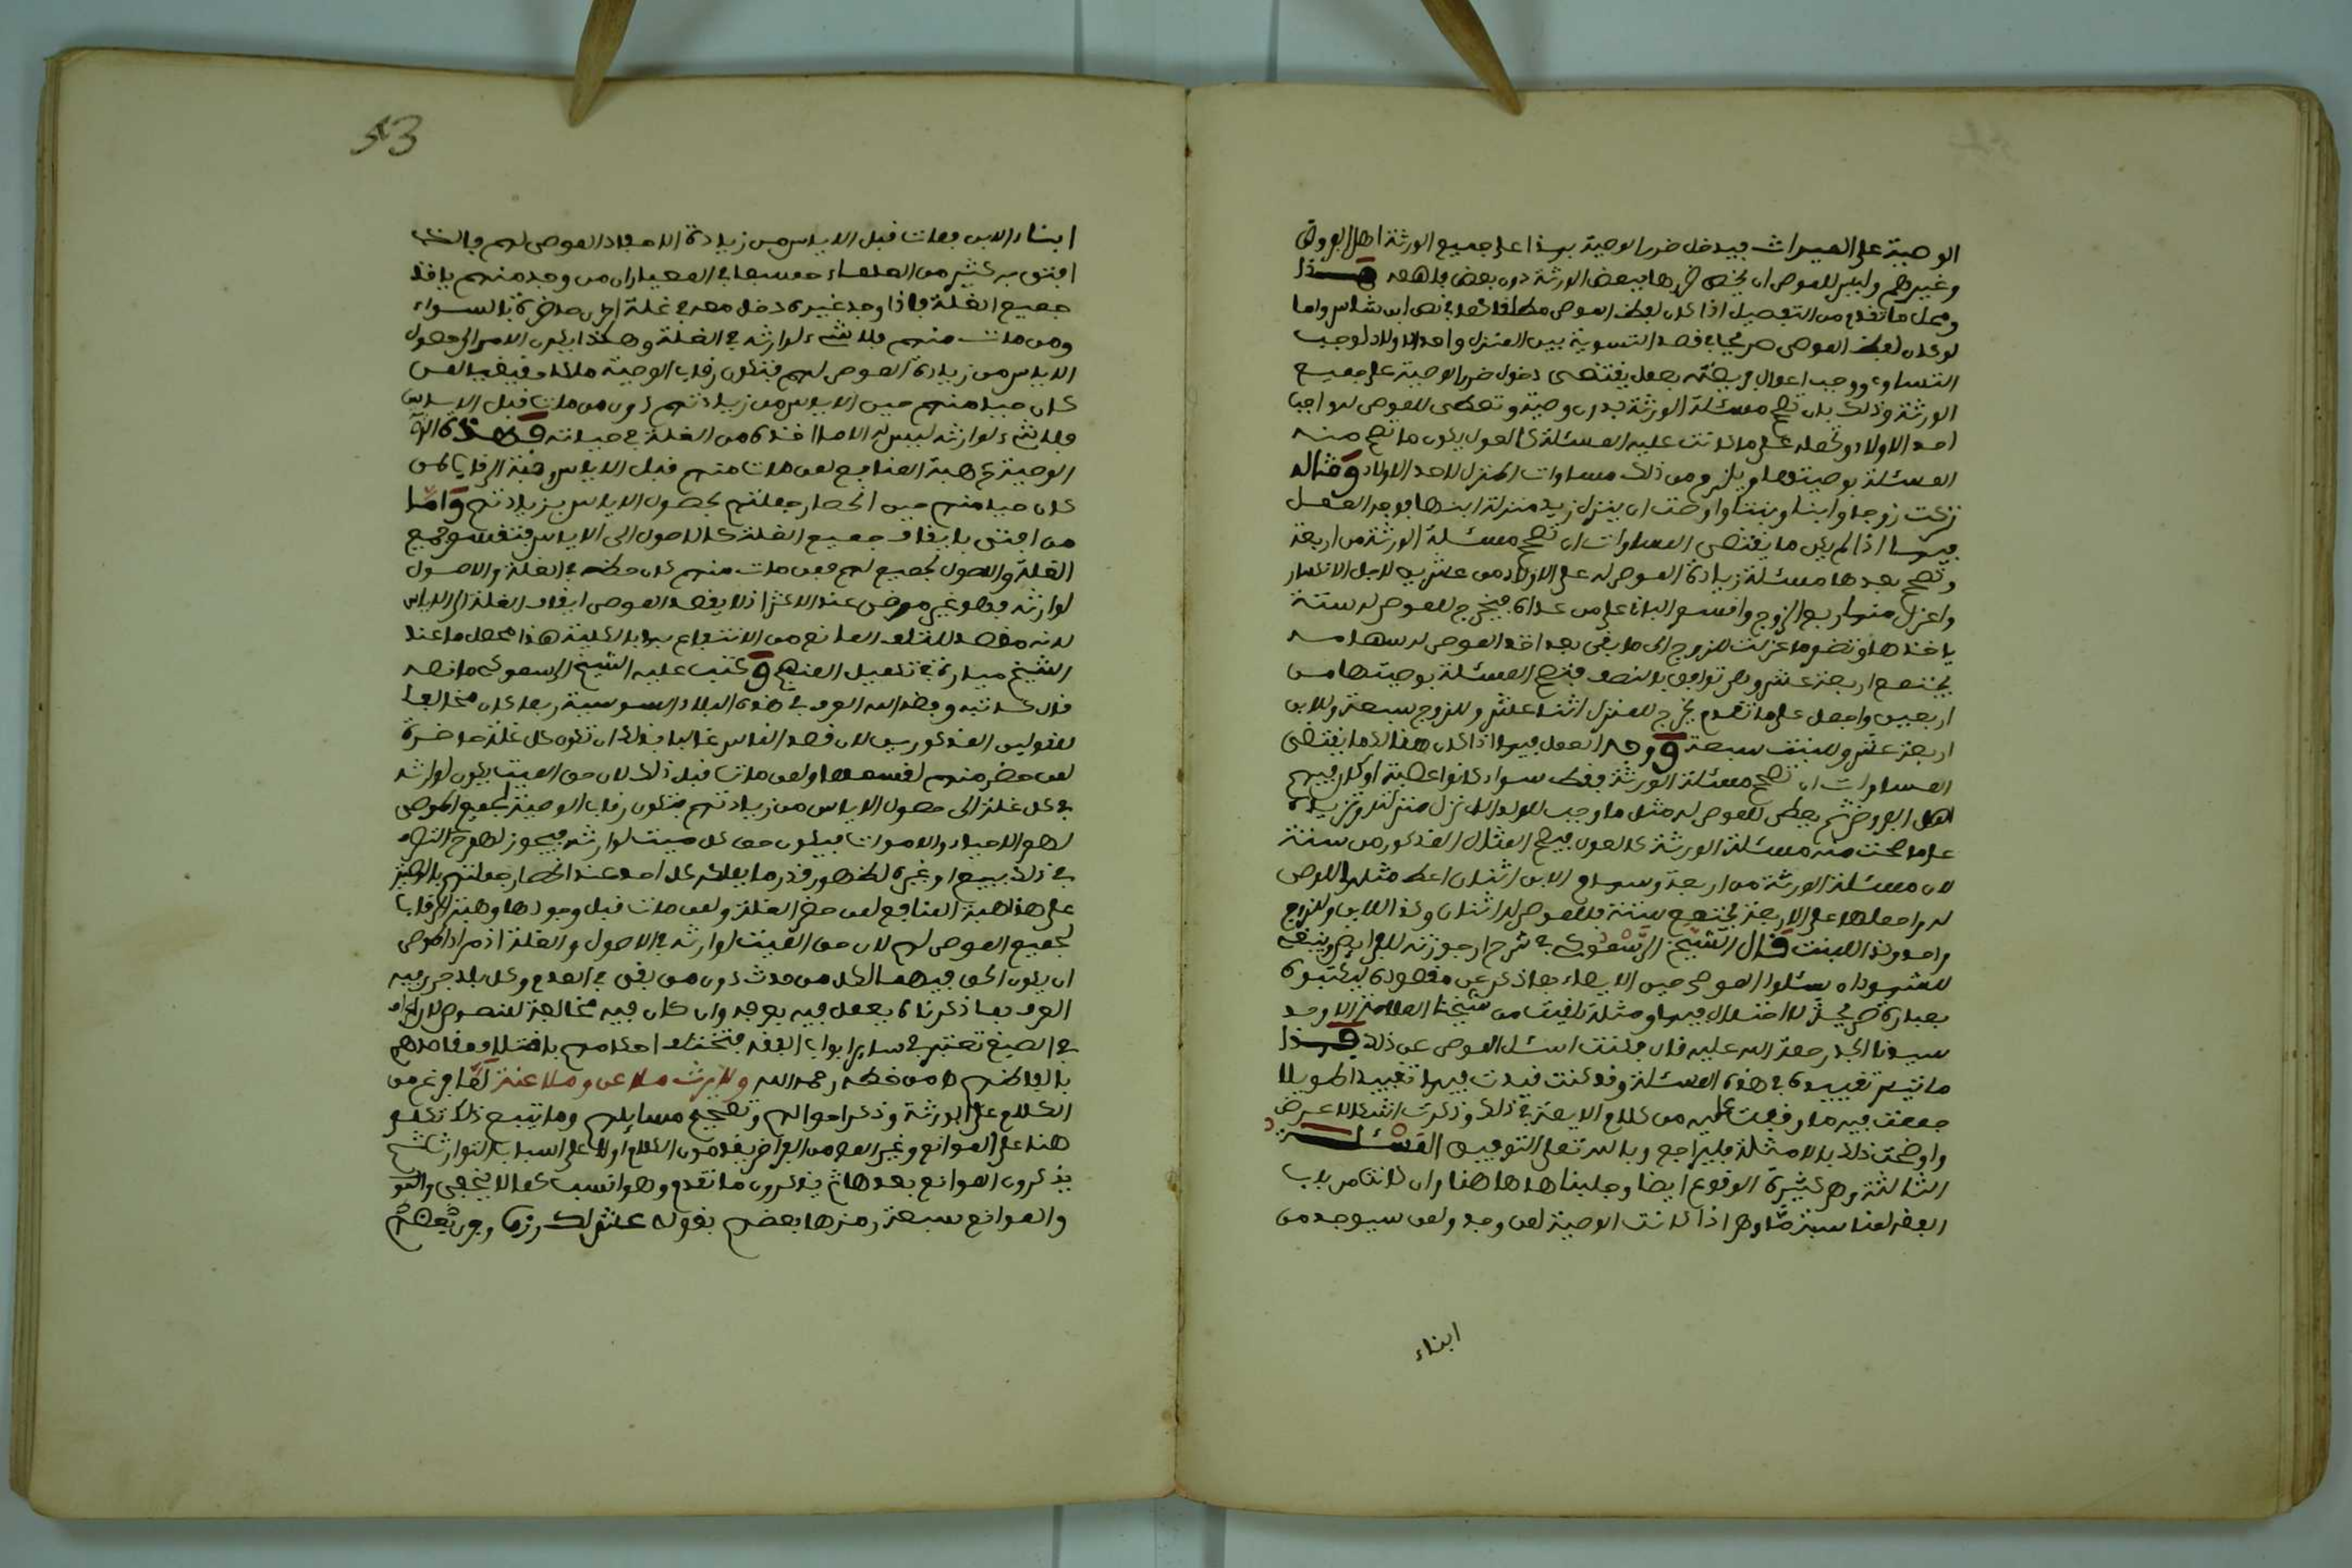 الوصية على الميراث فيدخل ضرر الوصية بهذا على جميع الورثة اهل الفروض
وغيرهم وليس للموصي ان يخص ضررها ببعض الورثة دون بعض فافهمه هذا
ومحل ما تقدم من التفصيل اذا كان لفظ الموصي مطلقا كما في نص ابن شاس واما
لو كان لفظ الموصي صريحا في قصد التسوية بين المنزل واحد الاولاد لوجب
التساوي ووجب اعمال فريضته بعمل يقتضي دخول ضرر الوصية على جميع
الورثة وذلك بان تصح مسئلة الورثة بدون وصية وتعطى للموصى له واجب
احد الاولاد وتحمله على ما كانت عليه المسئلة كالعول يكون ما تصح منه
المسئلة بوصيتها ويلزم من ذلك مساوات المنزل لاحد الاولاد ومثاله
تركت زوجا وابنا وبنتا واوصت ان ينزل زيد منزلة ابنها فوجه العمل
فيها اذا لم يكن ما يقتضي المساوات ان تصح مسئلة الورثة من اربعة
وتصح بعدها مسئلة زيادة الموصى له على الاولاد من عشرين لاجل الانكسار
واعزل منها ربع الزوج واقسم الباقي على من عداه فيخرج للموصى له ستة
ياخذها وتضم ما عزلت للزوج الى ما بقي بعد اخذ الموصى له سهامه
يجتمع اربعة عشر وهي توافق بالنصف فتصح المسئلة بوصيتها من
اربعين واجعل على ما تقدم يخرج للمنزل اثنا عشر وللزوج سبعة وللابن
اربعة عشر وللبنت سبعة ووجه العمل فيها اذا كان هناك ما يقتضي
المساوات ان تصح مسئلة الورثة فقط سواء كانوا عصبة او كان فيهم
اهل الفروض ثم يعطى للموصى له مثل ما وجب للولد الذي نزل منزلته وتزيده
على ما صحت منه مسئلة الورثة كالعول فيصح المثال المذكور من ستة
لان مسئلة الورثة من اربعة وسهام الابن اثنان اعط مثلها للموصى
له واجعلها على الاربعة يجتمع ستة فللموصى له اثنان وكذا للابن وللزوج
واحد وكذا للبنت قال الشيخ الرسموكي في شرح ارجوزته للفرايض وينبغي
للشهود ان يسئلوا الموصي حين الايصاء بما ذكر عن مقصوده ليكتبوه
بعبارة صريحة لا احتمال فيها ومثله تلقيت من شيخنا العلامة الاوحد
سيدنا الجد رحمة الله عليه قال فكنت اسئل الموصي عن ذلك هذا
ما تيسر تقييده في هذه المسئلة وقد كنت قيدت فيها تقييدا طويلا
جمعت فيه ما وقفت عليه من كلام الايمة في ذلك وذكرت اشكالا عرض
واوضحت ذلك بالامثلة فليراجع وبالله تعالى التوفيق المسئلة
الثالثة وهي كثيرة الوقوع ايضا وجلبناها هاهنا وان كانت من باب
الفقه لمناسبة ما وهي اذا كانت الوصية لمن وجد ولمن سيوجد من
ابناء
53
ابناء الابن فمات قبل الاياس من زيادة الاحفاد الموصى لهم فالذي
افتى به كثير من العلماء حسبما في المعيار ان من وجد منهم ياخذ
جميع الغلة فاذا وجد غيره دخل معه في غلة اول حاضرة بالسواء
ومن مات منهم فلا شيء لوارثه في الغلة وهكذا يكون الامر الى حصول
الاياس من زيادة الموصى لهم فتكون رقاب الوصية ملكا حقيقيا لمن
كان حيا منهم حين الاياس من زيادتهم دون من مات قبل الاياس
فلا شيء لوارثه ليس له الا ما اخذه من الغلة في حياته وهذه
الوصية كهبة المنافع لمن مات منهم قبل الاياس وهبة الرقاب لمن
كان حيا منهم حين انحصار جملتهم بحصول الاياس بزيادتهم واما
من افتى بايقاف جميع الغلة كالاصول الى الاياس فتقسم جميع
الغلة والاصول لجميع لهم فمن مات منهم كان حظه في الغلة والاصول
لوارثه فهو غير مرضي عند الاكثر اذ لا يقصد الموصي ايقاف الغلة الى الاياس
لانه مقصد للتلف المانع من الانتفاع بها بالكلية هذا محصل ما عند
الشيخ ميارة في تكميل المنهج وكتب عليه الشيخ الرسموكي ما نصه
قال كاتبه وفقه الله العرف في هذه البلاد السوسية ربما كان مخالفا
للقولين المذكورين لان قصد الناس غالبا بذلك ان تكون كل غلة حاضرة
لمن حضر منهم لقسمها ولمن مات قبل ذلك لان حق الميت يكون لوارثه
في كل غلة الى حصول الاياس من زيادتهم فتكون رقاب الوصية لجميع الموصى
لهم الاحياء والاموات فيكون حق كل ميت لوارثه فيجوز لهم التصرف
في ذلك ببيع او غيره لظهور قدر ما يملكه كل احد عند انحصار جملتهم بالموت
على هذا هبة المنافع لمن حضر الغلة ولمن مات قبل وجودها وهبة الرقاب
لجميع الموصى لهم لان حق الميت لوارثه في الاصول والغلة اذ مراد الموصي
ان يكون الحق فيهما لكل من حدث دون من بقي في العدم وكل بلد جرى فيه
العرف بما ذكرناه يعمل فيه بعرفه وان كان فيه مخالفة لنصوص
في الصيغ تعتبر في ساير ابواب الفقه فتختلف احكامهم باختلاف مقاصدهم
بالفاظهم اه من خطه رحمه الله ولا يرث ملاعن وملاعنة لما فرغ من
الكلام على الورثة وذكر احوالهم وتصحيح مسايلهم وما يتبع ذلك تكلم
هنا على الموانع وغير المص من الفراض يقدمون الكلام اولا على اسباب التوارث ثم
يذكرون الموانع بعدها ثم يذكرون ما تقدم وهو انسب كما لا يخفى
والموانع سبعة رمزها بعضهم بقوله عش لك رزق وبعضهم